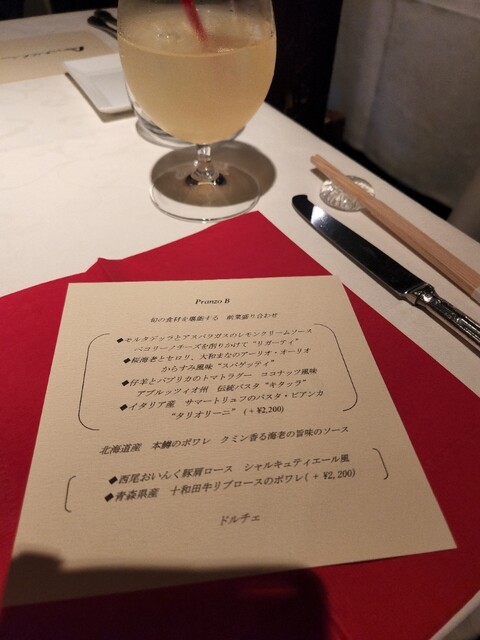 Pranzo B
旬の食材を堪能する 前菜盛り合わせ
◆モルタデッラとアスパラガスのレモンクリームソース
ペコリーノチーズを削りかけて "リガーティ"
◆桜海老とセロリ、大和まなのアーリオ・オーリオ
からすみ風味 "スパゲッティ"
◆仔羊とパプリカのトマトラグー ココナッツ風味
アブルッツィオ州 伝統パスタ "キタッラ"
◆イタリア産 サマートリュフのパスタ・ビアンカ
"タリオリーニ" (+¥2,200)
北海道産 本鱒のポワレ クミン香る海老の旨味のソース
◆西尾おいんく豚肩ロース シャルキュティエール風
◆青森県産 十和田牛リブロースのポワレ(+¥2,200)
ドルチェ